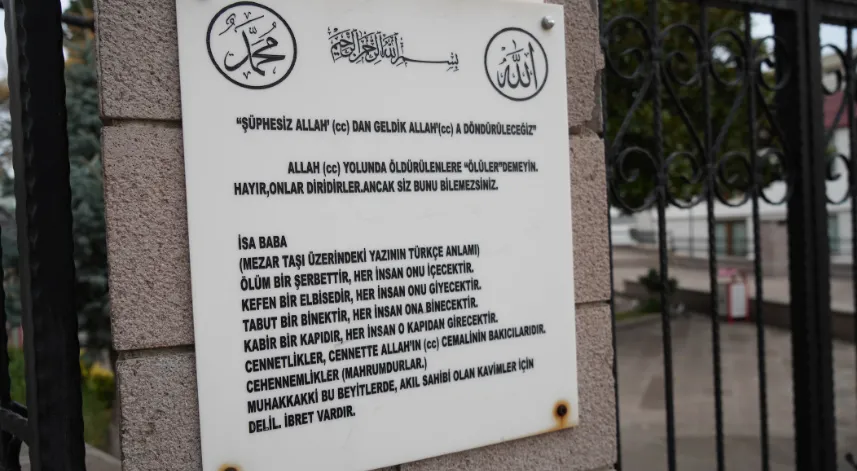 محمد
بسم الله الرحمن الرحيم
الله
"ŞÜPHESİZ ALLAH' (cc) DAN GELDİK ALLAH'(cc) A DÖNDÜRÜLECEĞİZ"
ALLAH (cc) YOLUNDA ÖLDÜRÜLENLERE "ÖLÜLER"DEMEYİN.
HAYIR,ONLAR DİRİDİRLER.ANCAK SİZ BUNU BİLEMEZSİNİZ.
İSA BABA
(MEZAR TAŞI ÜZERİNDEKİ YAZININ TÜRKÇE ANLAMI)
ÖLÜM BİR ŞERBETTİR, HER İNSAN ONU İÇECEKTİR.
KEFEN BİR ELBİSEDİR, HER İNSAN ONU GİYECEKTİR.
TABUT BİR BİNEKTİR, HER İNSAN ONA BİNECEKTİR.
KABİR BİR KAPIDIR, HER İNSAN O KAPIDAN GİRECEKTİR.
CENNETLİKLER, CENNETTE ALLAH'IN (cc) CEMALİNİN BAKICILARIDIR.
CEHENNEMLİKLER (MAHRUMDURLAR.)
MUHAKKAKKİ BU BEYİTLERDE, AKIL SAHİBİ OLAN KAVİMLER İÇİN
DELİL. İBRET VARDIR.